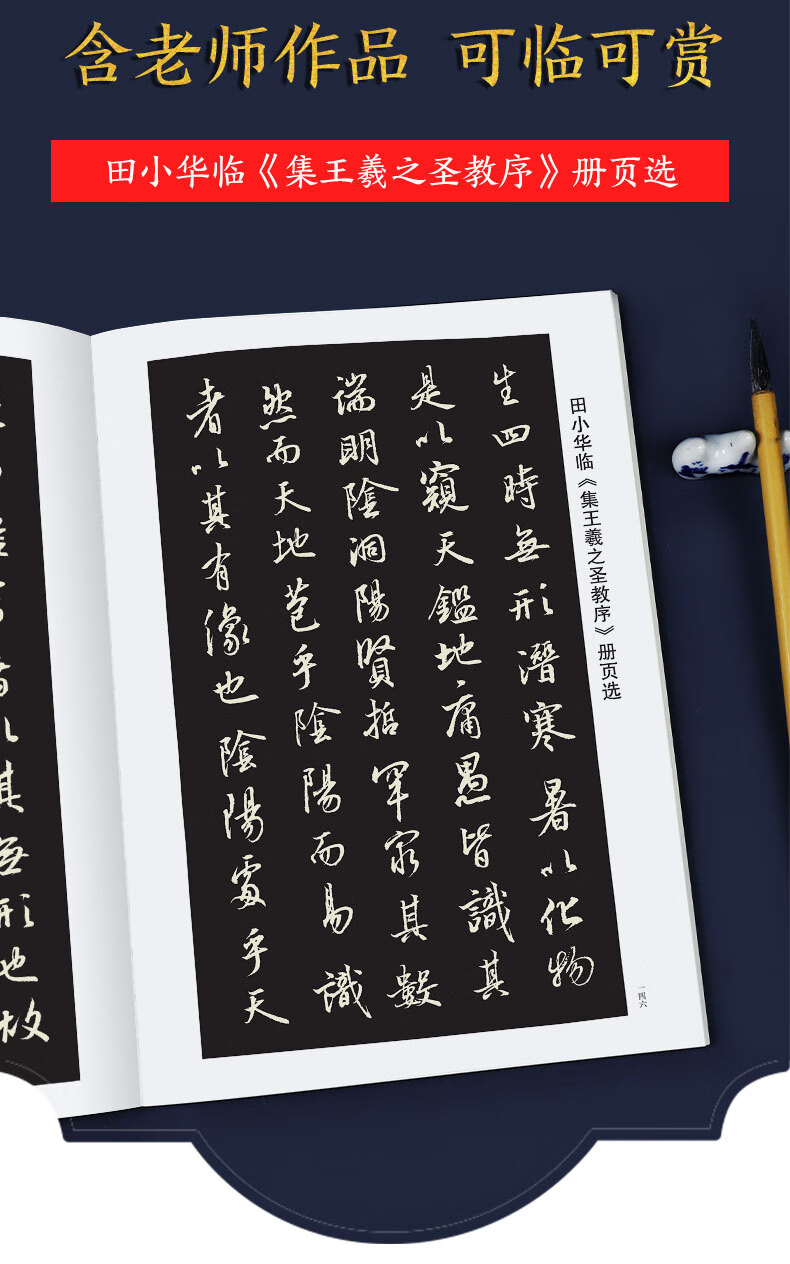 含老师作品 可临可赏
田小华临《集王羲之圣教序》册页选
田小华临《集王羲之圣教序》册页选
生四時無形潛寒暑以化物
是以窺天鑑地庸愚皆識其
端明陰洞陽賢哲罕窮其數
然而天地苞乎陰陽而易識
者以其有像也陰陽處乎天
以其無形也故
一四六